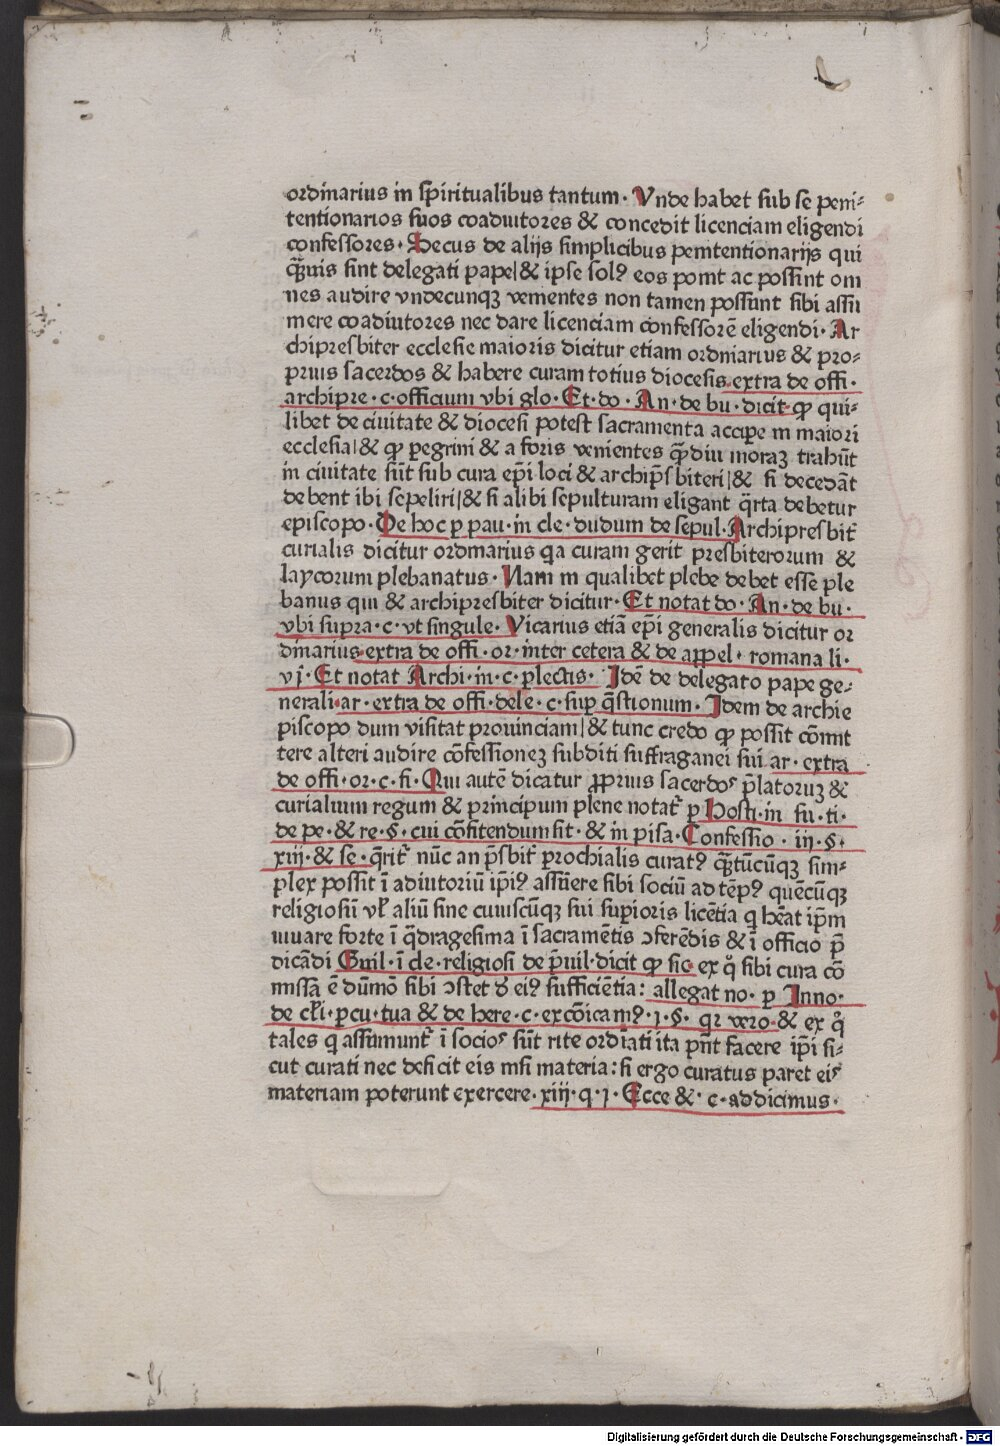 ordinarius in spiritualibus tantum. Vnde habet sub se peni⸗
tentionarios suos coadiutores & concedit licenciam eligendi
confessores. Secus de alijs simplicibus penitentionarijs qui
q̄uis sint delegati pape/& ipse solꝰ eos ponit ac possint om
nes audire vndecunqꝫ venientes non tamen possunt sibi assu
mere coadiutores nec dare licenciam confessorē eligendi. Ar
chipresbiter ecclesie maioris dicitur etiam ordinarius & pro⸗
prius sacerdos & habere curam totius diocesis extra de offi.
archipre.c.officium vbi glo. Et.do. An.de bu.dicit ꝙ qui⸗
libet de ciuitate & diocesi potest sacramenta accipere in maiori
ecclesia/& ꝙ peregrini & a foris venientes q̄diu moraꝫ trahūt
in ciuitate sūt sub cura ep̄i loci & archip̄sbiteri/& si decedāt
debent ibi sepeliri/& si alibi sepulturam eligant q̄rta debetur
episcopo. De hoc ꝑ pau.in cle.dudum de sepul. Archipresbit̄
curialis dicitur ordinarius q̇a curam gerit presbiterorum &
laycorum plebanatus. Nam in qualibet plebe debet esse ple
banus qui & archipresbiter dicitur. Et notat do. An.de bu.
vbi supra.c.vt singule. Vicarius etiā ep̄i generalis dicitur or
dinarius extra de offi.or.inter cetera & de appel. romana li.
vj. Et notat Archi.in.c.plectis. Idē de delegato pape ge⸗
nerali.ar.extra de offi.dele.c.suꝑ q̄stionum. Idem de archie
piscopo dum visitat prouinciam/& tunc credo ꝙ possit cōmit
tere alteri audire cōfessioneꝫ subditi suffraganei sui ar.extra
de offi.or.c.fi. Qui autē dicatur ꝓprius sacerdos p̄latoruꝫ &
curialium regum & principum plene notat̄ ꝑ Hosti.in su.ti.
de pe.& re.§.cui cōfitendum sit.& in pisa. Confessio.iij.§.
xiij.& se.q̄rit̄ nūc an p̄sbit̄ prochialis curatꝰ q̄tūcūqꝫ sim⸗
plex possit ī adiutoriū ip̄iꝰ assūere sibi sociū ad tēpꝰ quēcūqꝫ
religiosū vl̄ aliū sine cuiuscūqꝫ sui superioris licētia q̇ hēat ip̄m
iuuare forte ī q̄dragesima ī sacramētis ↄferēdis & ī officio p̄
dicādi Guil.ī cle.religiosi de p̄uil.dicit ꝙ sic ex qͦ sibi cura cō
missa ē dūmō sibi ↄstet ꝺ eiꝰ sufficiētia: allegat no. ꝑ Inno.
de cl̄i.ꝑcu.tua & de here.c.excōicamꝰ.j.§. qꝛ vero.& ex qͦ
tales q̇ assumunt̄ ī socios sūt rite ordīati ita pn̄t facere ip̄i si⸗
cut curati nec deficit eis nisi materia: si ergo curatus paret eis
materiam poterunt exercere.xiij.q.j. Ecce &.c.addicimus.
Digitalisierung gefördert durch die Deutsche Forschungsgemeinschaft - DFG